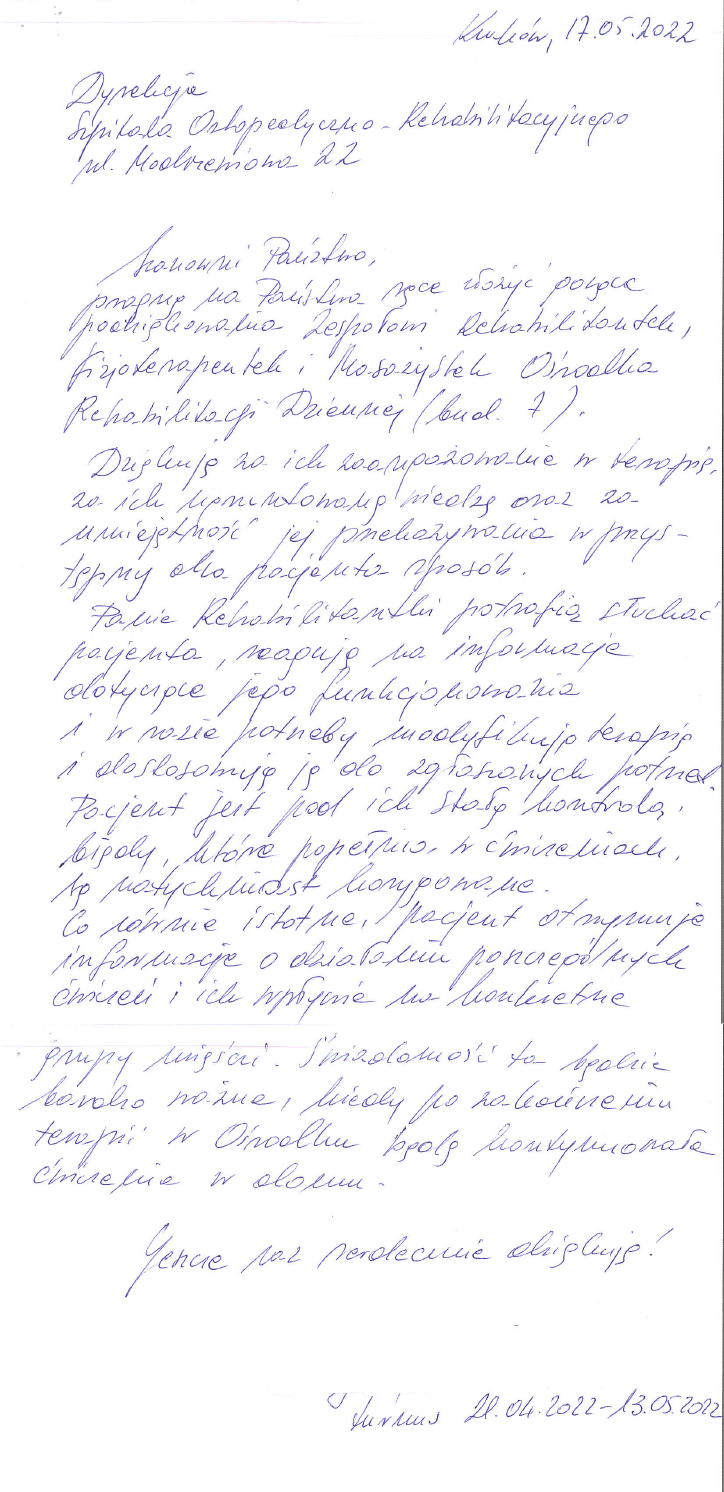 Kraków, 17.05.2022
Dyrekcja
Szpitala Ortopedyczno-Rehabilitacyjnego
ul. Modrzewiowa 22
Szanowni Państwo,
pragnę na Państwa ręce złożyć gorące
podziękowania Zespołowi Rehabilitantek,
Fizjoterapeutek i Masażystek Ośrodka
Rehabilitacji Dziennej (bud. 7).
Dziękuję za ich zaangażowanie w terapię,
za ich ugruntowaną wiedzę oraz za
umiejętność jej przekazywania w przys-
tępny dla pacjenta sposób.
Panie Rehabilitantki potrafią słuchać
pacjenta, reagują na informacje
dotyczące jego funkcjonowania
i w razie potrzeby modyfikują terapię
i dostosowują ją do zgłaszanych potrzeb.
Pacjent jest pod ich stałą kontrolą,
błędy, które popełnia w ćwiczeniach,
są natychmiast korygowane.
Co równie istotne, pacjent otrzymuje
informacje o działaniu poszczególnych
ćwiczeń i ich wpływie na konkretne
grupy mięśni. Świadomość ta będzie
bardzo ważna, kiedy po zakończeniu
terapii w Ośrodku będę kontynuowała
ćwiczenia w domu.
Jeszcze raz serdecznie dziękuję!
turnus 21.04.2022-13.05.2022